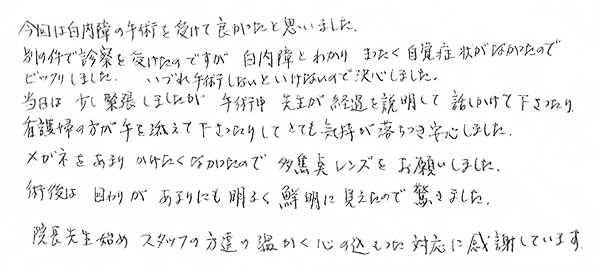 今回は白内障の手術を受けて良かったと思いました。
別の件で診察を受けたのですが 白内障とわかり まったく自覚症状がなかったので
ビックリしました。 いづれ手術しないといけないので決心しました。
当日は 少し緊張しましたが 手術中 先生が経過を説明して 話しかけて下さったり
看護婦の方が手を添えて下さったりしてとても気持が落ちつき安心しました。
メガネをあまりかけたくなかったので 多焦点レンズをお願いしました。
術後は 回わりがあまりにも明るく鮮明に見えたので驚きました。
院長先生始め スタッフの方達の温かく心の込もった対応に感謝しています。